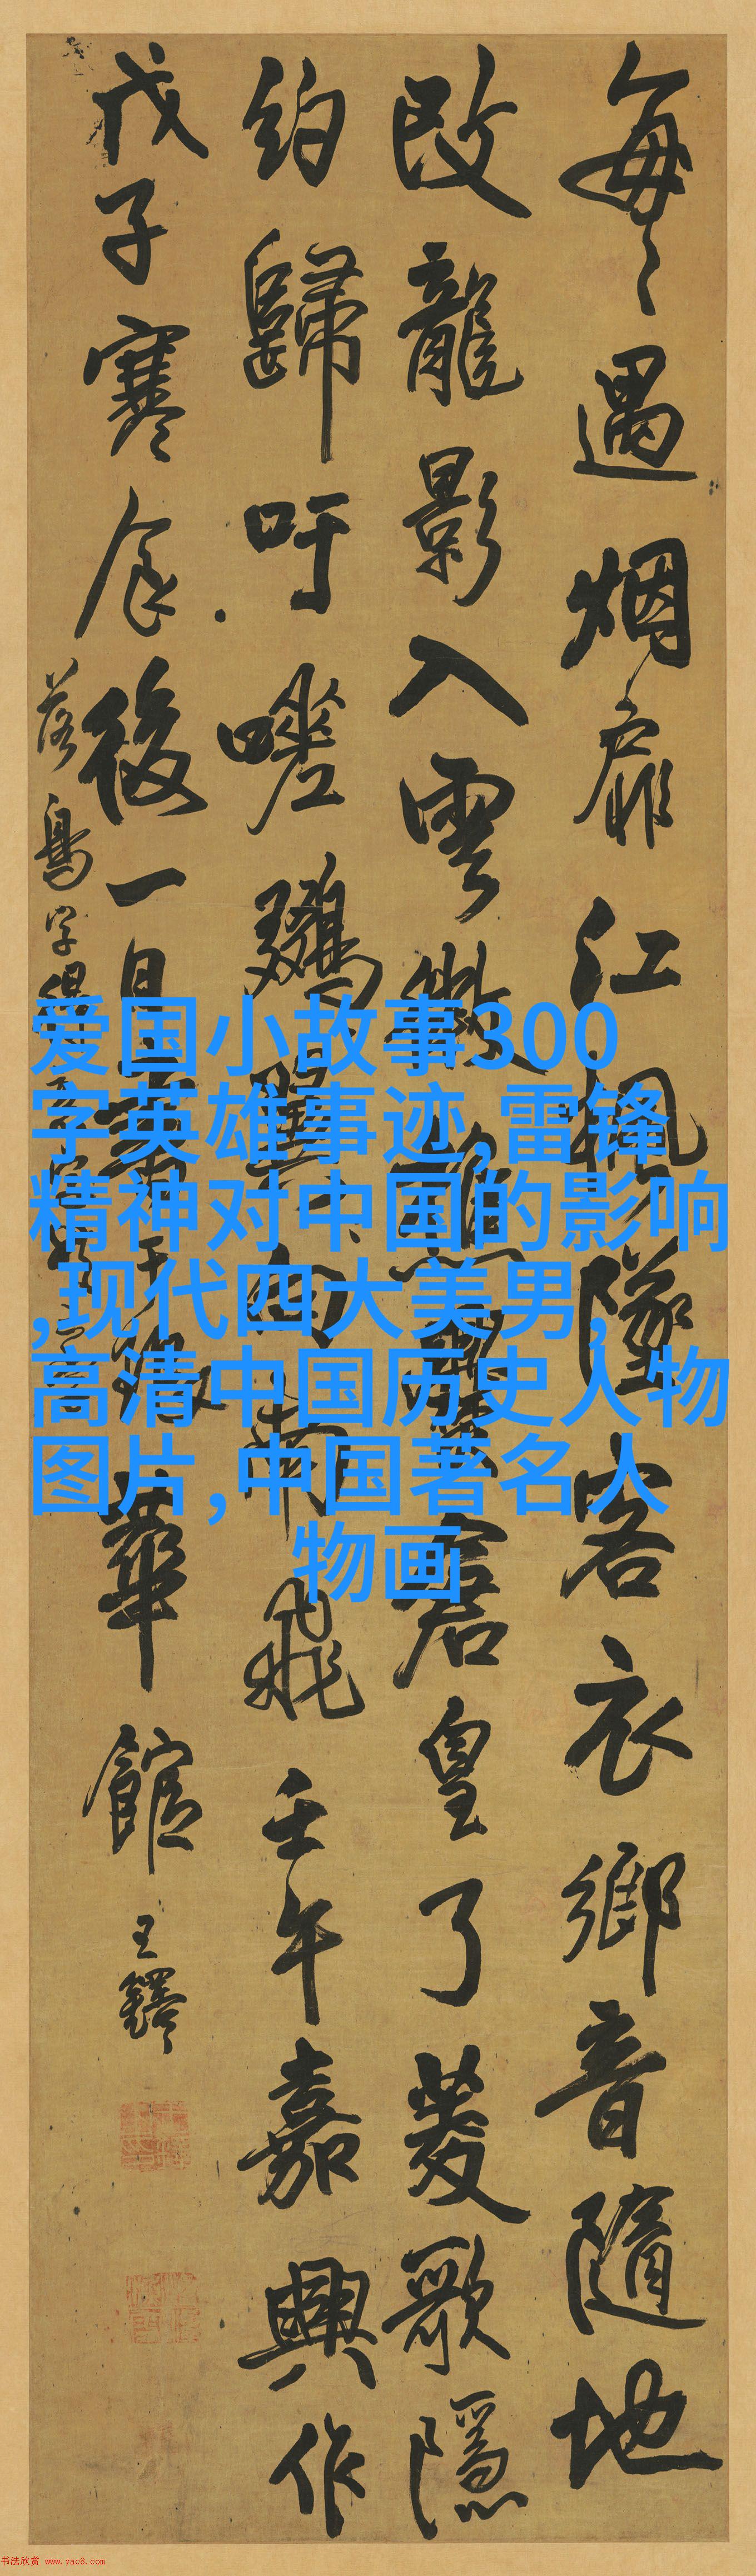 每每遇烟扉江楓墜客衣鄉音隨地
改龍影入雲微 君皇了菱歌隱
約歸吁嗟鷄 白 飛壬午嘉興作
戊子寒食後一日 華館
王鐸
落鳥字
爱国小故事300
字英雄事迹,雷锋
精神对中国的影响
,现代四大美男,
高清中国历史人物
图片,中国著名人
物画
书法欣赏 www.yac8.com